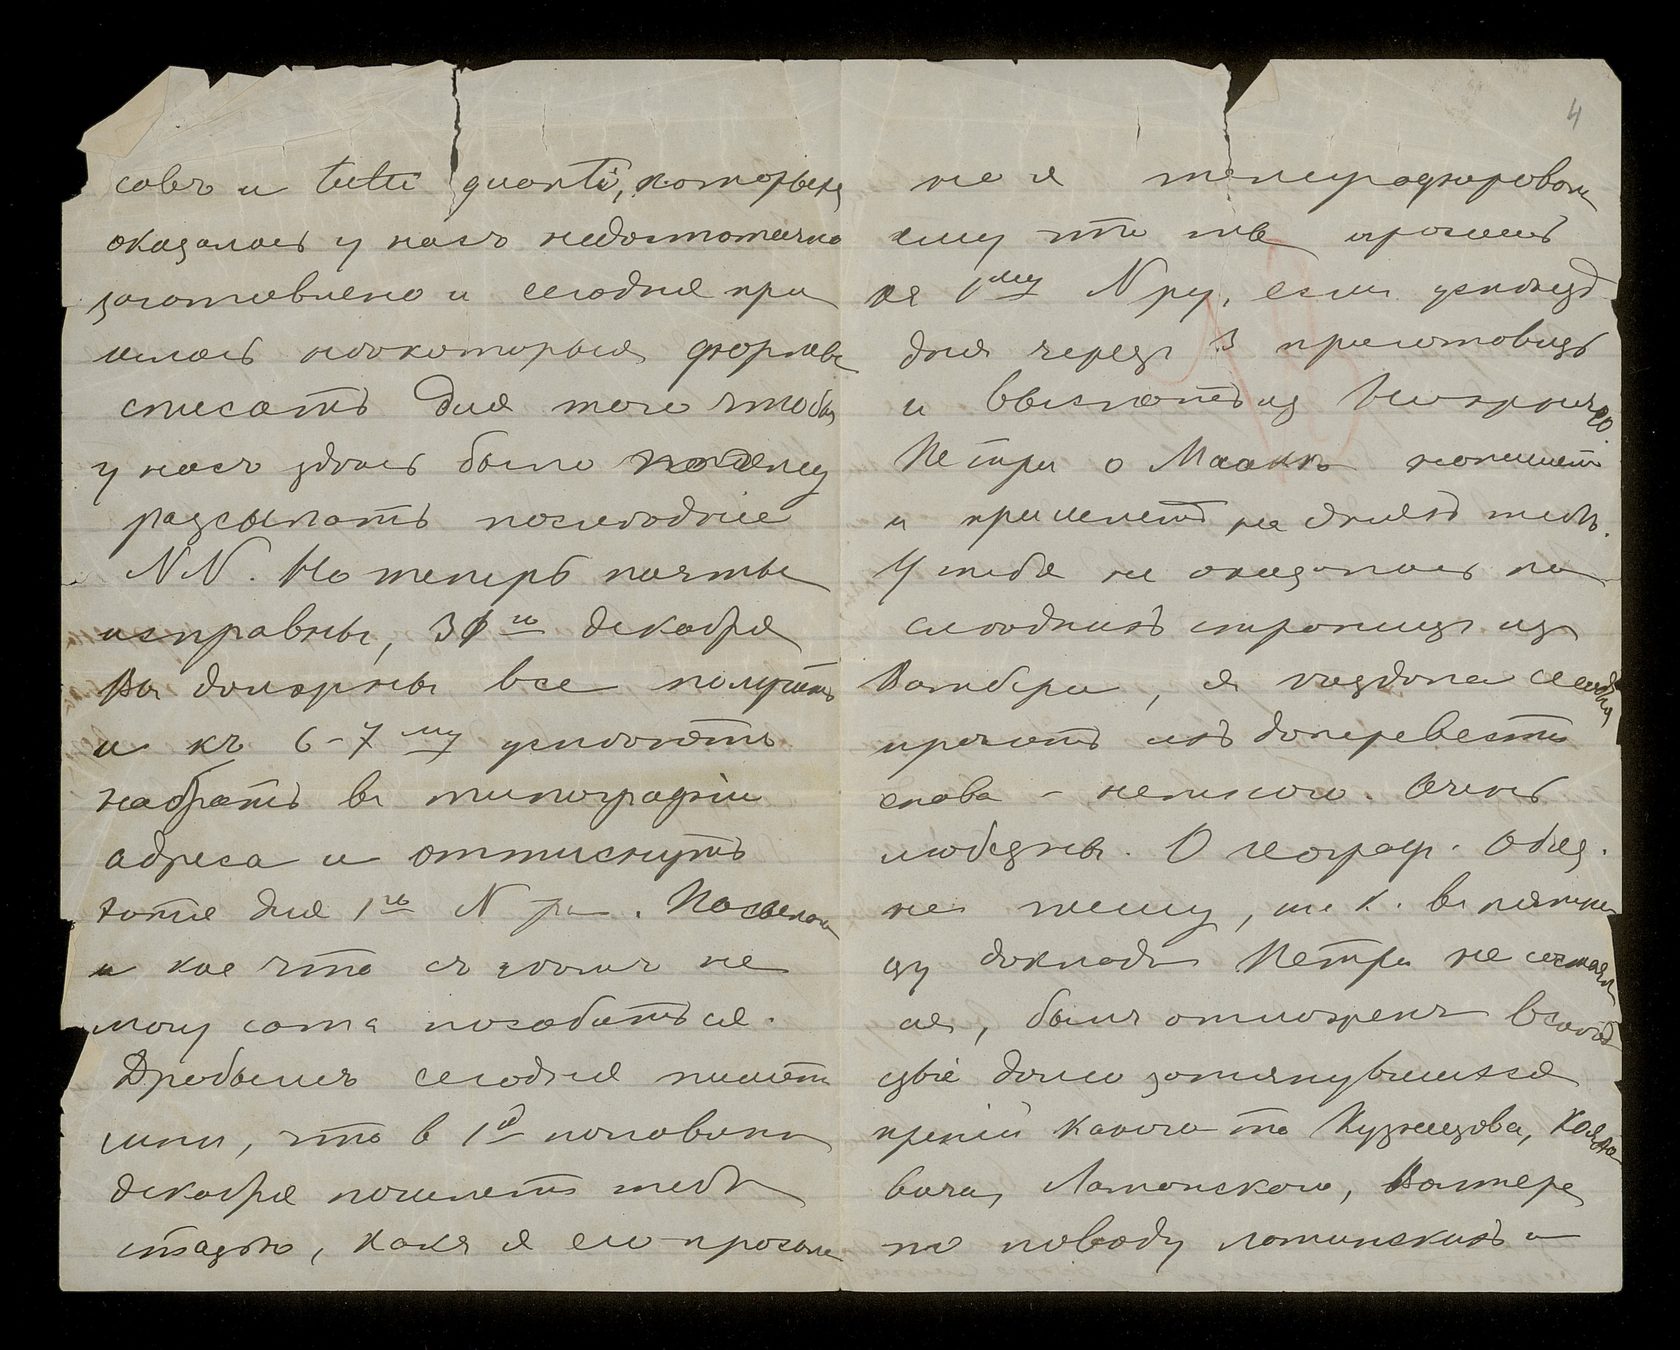 совъ и tutti quanti, которыхъ
оказалось у насъ недостаточно
заготовлено и сегодня при
шлось некоторыя формы
списать для того чтобы
у насъ здѣсь было
разсылать послѣдніе
NN. Но теперь почты
исправны, 30го декабря
Вы должны все получить
и къ 6-7му успѣютъ
набрать въ типографіи
адреса и оттиснуть
для 1го N ра. Посылаю
и кое что съ этимъ не
могу сама позаботиться.
Дробышъ сегодня пишетъ
мнѣ, что в 1й половинѣ
декабря пошлетъ тебѣ
статью, какъ я его просила
но я телеграфировала
ему что ты просишь
къ 1му Nру, если успѣетъ
дня черезъ 3 приготовить
и выслать изъ
Петри о Маакѣ напишетъ
и пришлетъ на дняхъ тебѣ.
У тебя не оказалось по
слѣднихъ страницъ изъ
Вамбери, я ѣздила сегодня
просить ихъ доперевести
снова - немного. Очень
любезны. О географ. Общ.
не пишу, т. к. въ пятни
цу докладъ Петри не состоял
ся, былъ отложенъ вслѣд
ствіе долго затянувшихся
преній какого то Кузнецова, Кояло
вича, Ламанского, Вольтера
по поводу латинскихъ и
4